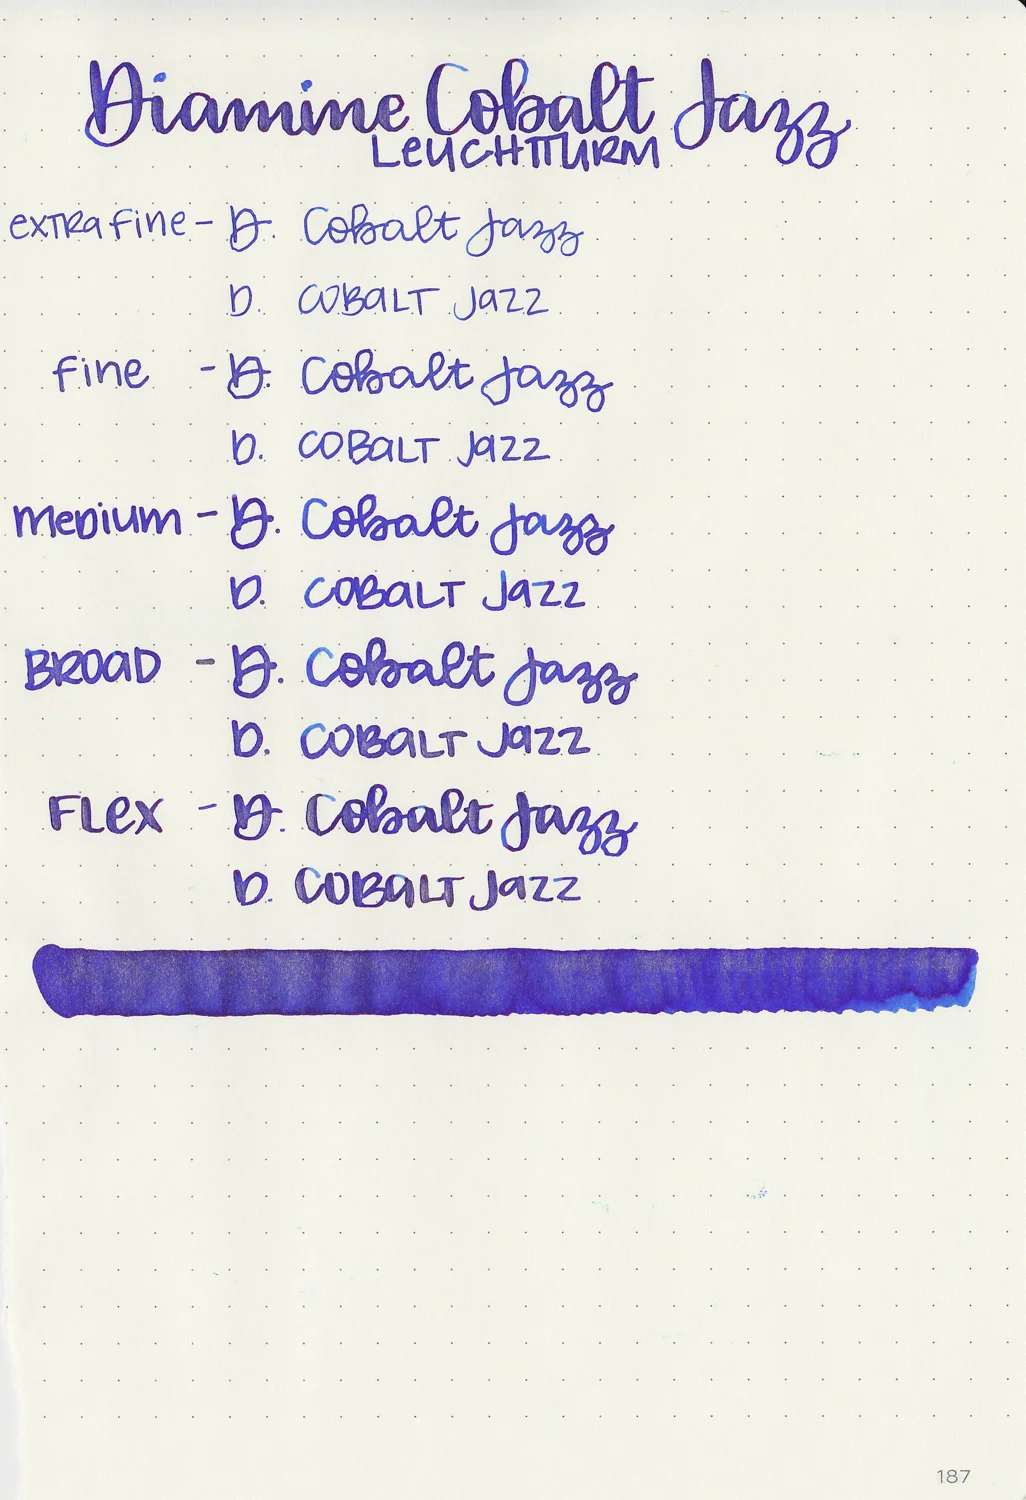 Diamine Cobalt Jazz
LEUCHTTURM
extra fine - D. Cobalt Jazz
D. COBALT JAZZ
fine - D. Cobalt Jazz
D. COBALT JAZZ
MEDIUM - D. Cobalt Jazz
D. COBALT JAZZ
BROAD - D. Cobalt Jazz
D. COBALT JAZZ
FLEX - D. Cobalt Jazz
D. COBALT JAZZ
187